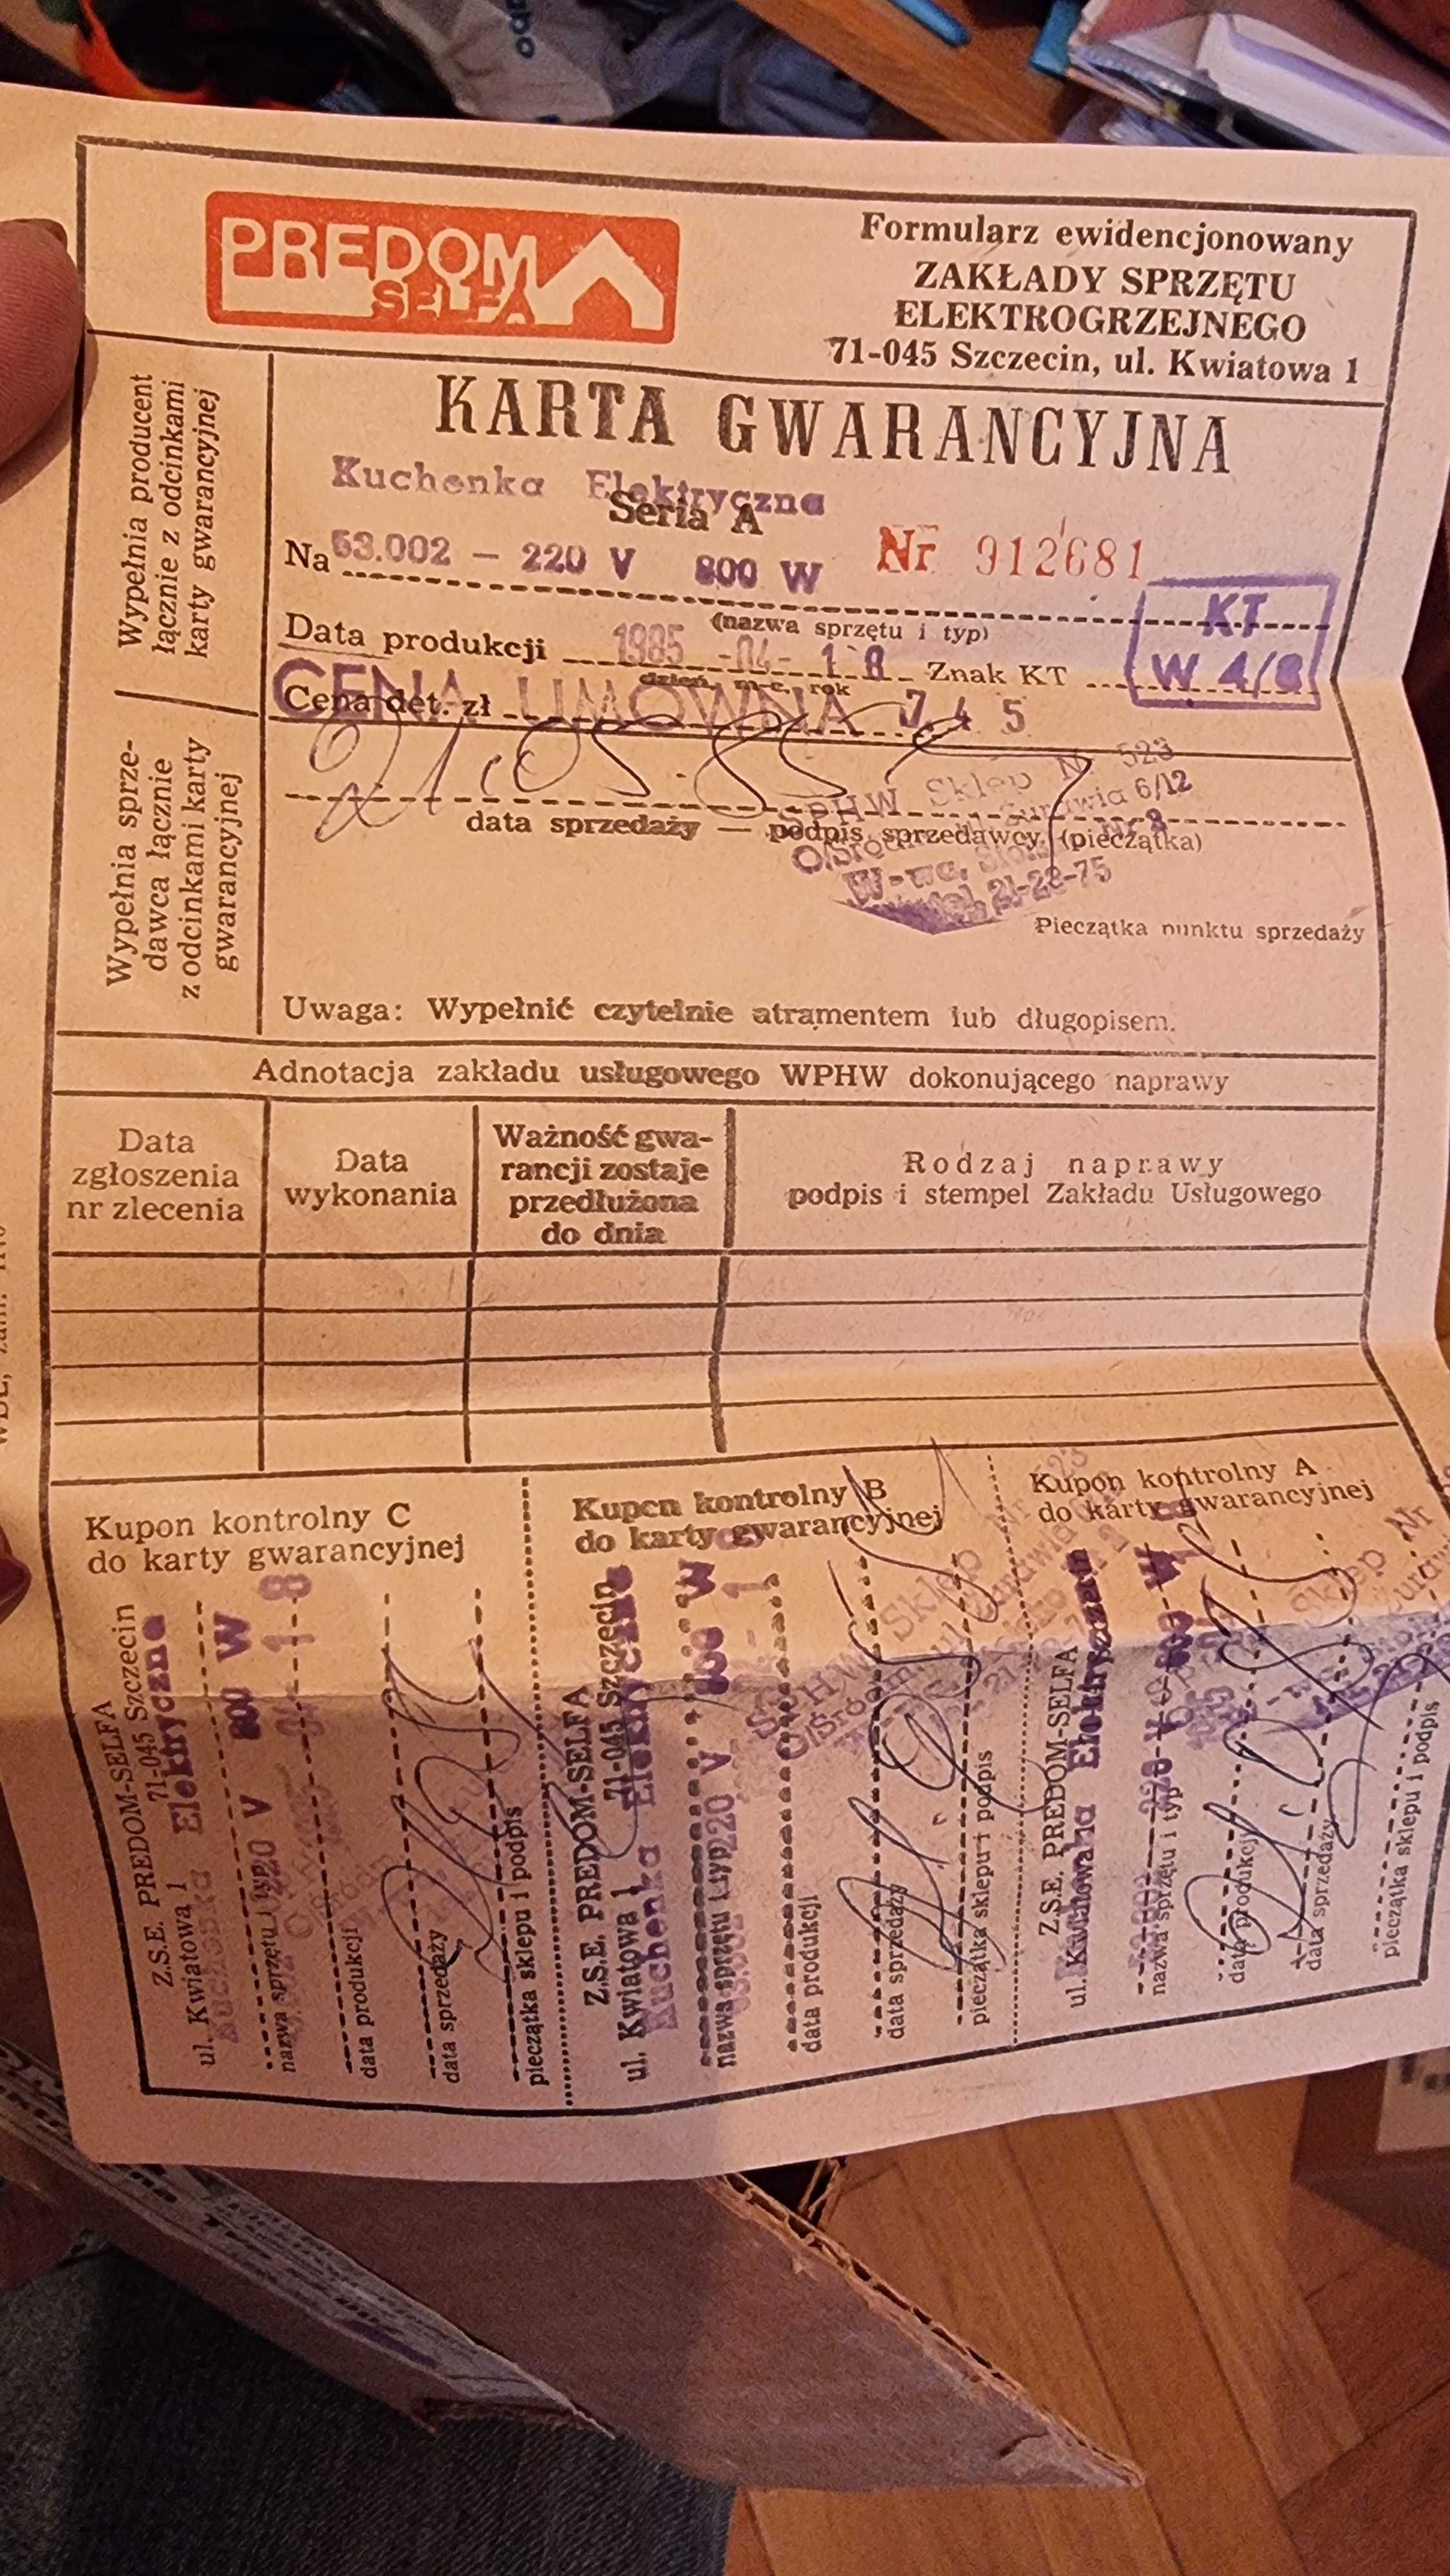 PREDOM
SELFA
Formularz ewidencjonowany
ZAKŁADY SPRZĘTU
ELEKTROGRZEJNEGO
71-045 Szczecin, ul. Kwiatowa 1
Wypełnia producent
łącznie z odcinkami
karty gwarancyjnej
KARTA GWARANCYJNA
Kuchenka Elektryczna
Seria A
Nr 912681
Na 63.002 — 220 V 800 W
(nazwa sprzętu i typ)
KT
W 4/8
Data produkcji 1985 -04- 18 Znak KT
dzień, m-c, rok
Cena det. zł
CENA UMOWNA 745
Wypełnia sprze-
dawca łącznie
z odcinkami karty
gwarancyjnej
21.05.85
Sklep Nr 523
6/12
data sprzedaży — podpis sprzedawcy (pieczątka)
21-28-75
Pieczątka punktu sprzedaży
Uwaga: Wypełnić czytelnie atramentem lub długopisem.
Adnotacja zakładu usługowego WPHW dokonującego naprawy
Data
zgłoszenia
nr zlecenia
Data
wykonania
Ważność gwa-
rancji zostaje
przedłużona
do dnia
Rodzaj naprawy
podpis i stempel Zakładu Usługowego
Kupon kontrolny C
do karty gwarancyjnej
Z.S.E. PREDOM-SELFA
ul. Kwiatowa 1 71-045 Szczecin
Kuchenka Elektryczna
220 V 800 W
nazwa sprzętu i typ
data produkcji
data sprzedaży
pieczątka sklepu i podpis
Kupon kontrolny B
do karty gwarancyjnej
Z.S.E. PREDOM-SELFA
ul. Kwiatowa 1 71-045 Szczecin
Kuchenka Elektryczna
220 V 800 W
nazwa sprzętu i typ
data produkcji
data sprzedaży
pieczątka sklepu i podpis
Kupon kontrolny A
do karty gwarancyjnej
Z.S.E. PREDOM-SELFA
ul. Kwiatowa
Elektryczna
nazwa sprzętu i typ
data produkcji
data sprzedaży
pieczątka sklepu i podpis